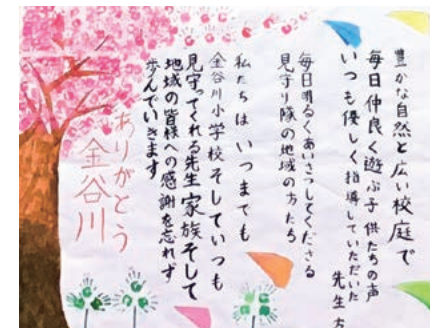 豊かな自然と広い校庭で
毎日仲良く遊ぶ子供たちの声
いつも優しく指導していただいた
先生方
毎日明るくあいさつしてくださる
見守り隊の地域の方たち
私たちは いつまでも
金谷川小学校そしていつも
見守ってくれる先生家族そして
地域の皆様への感謝を忘れず
歩んでいきます
ありがとう
金谷川